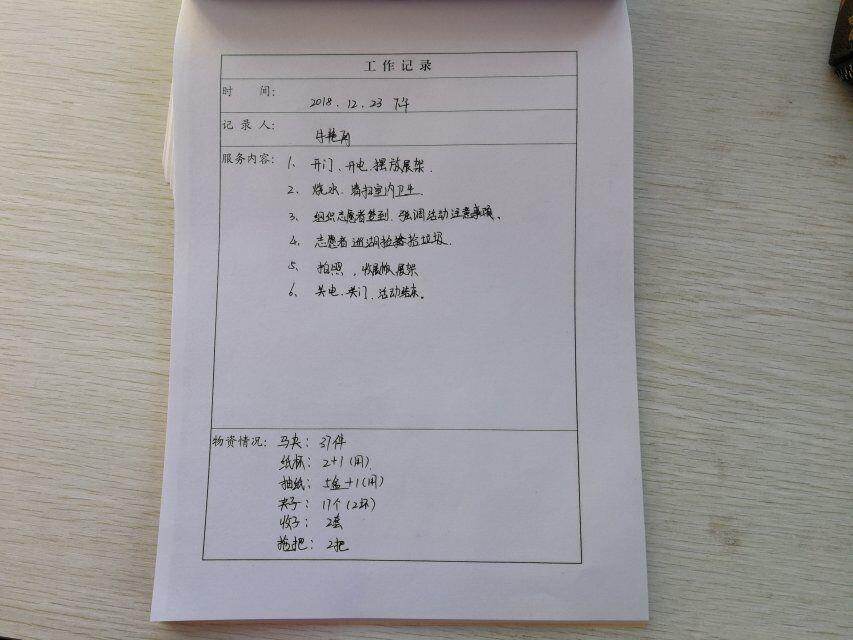 工作记录
时 间: 2018.12.23 下午
记录人: 牛艳
服务内容: 1、开门、开电、摆放展架.
2、烧水、清扫室内卫生.
3、组织志愿者签到、强调活动注意事项.
4、志愿者巡湖捡垃圾.
5、拍照、收展架
6、关电、关门、活动结束。
物资情况: 马夹: 37件
纸杯: 2+1(用)
抽纸: 5盒+1(用)
夹子: 17个(2坏)
2套
拖把: 2把